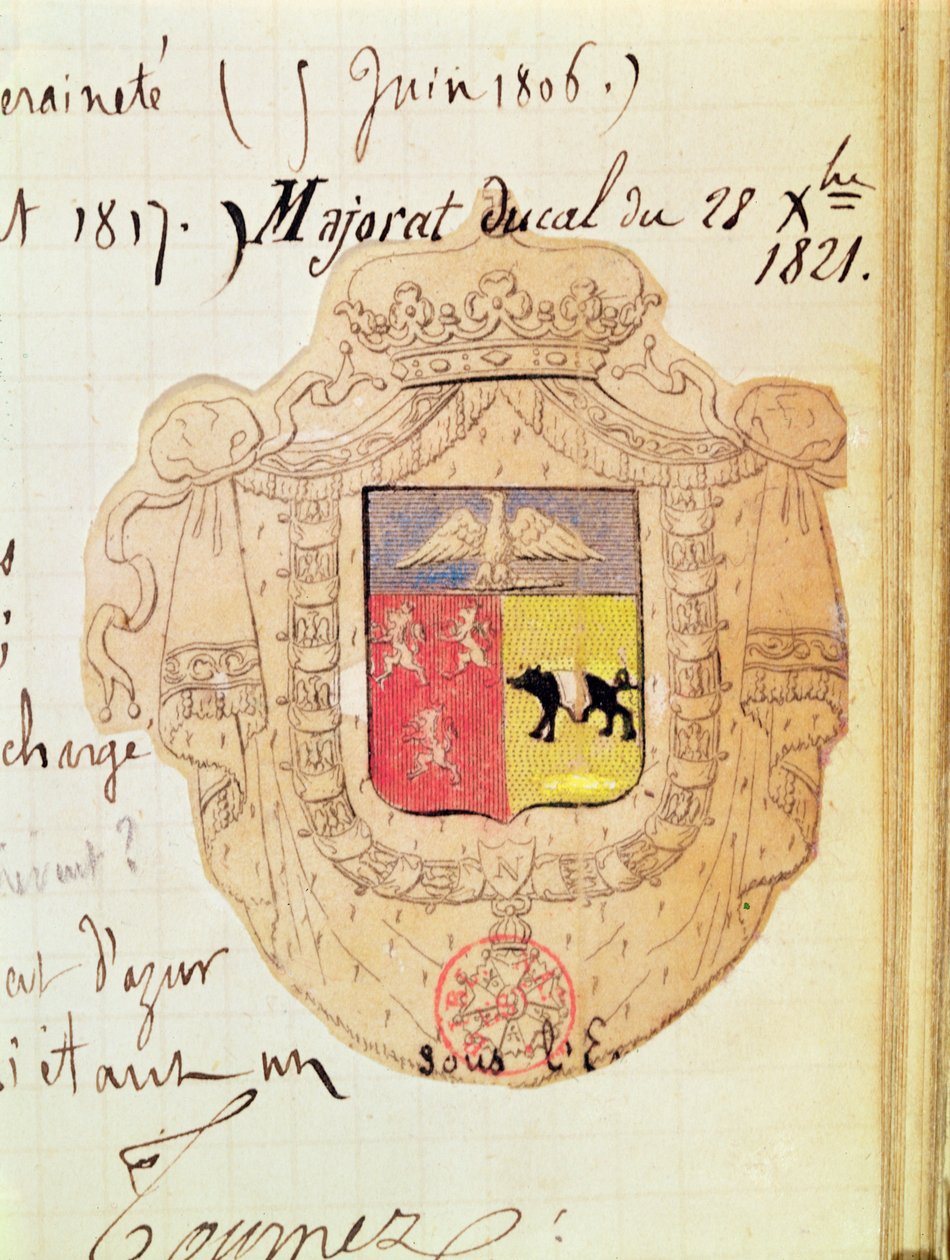 eraineté ( 5 Juin 1806.)
t 1817. ) Majorat ducal du 28 Xbre
1821.
chargé
?
N
d'azur
étant un
sous l'E.
Tournez :